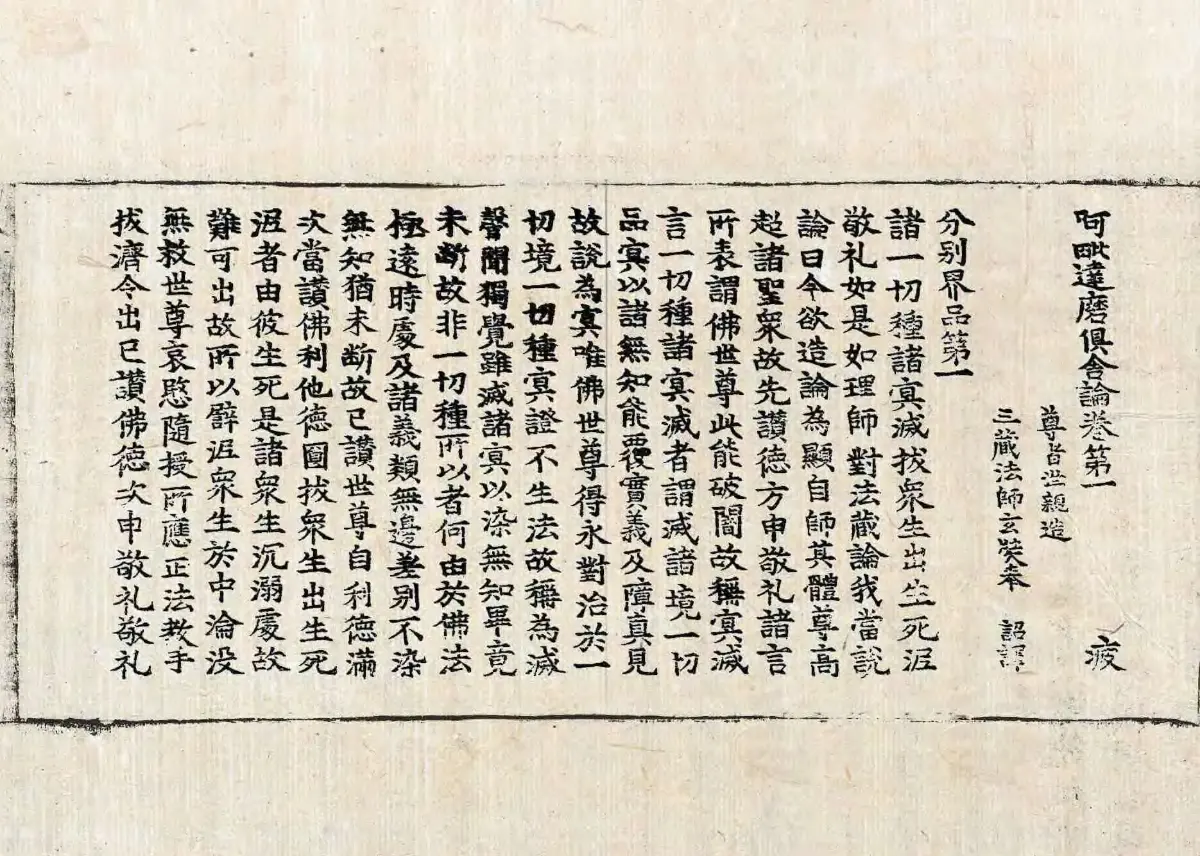 阿毗達磨俱舍論卷第一 疲
尊者世親造
三藏法師玄奘奉 詔譯
分别界品第一
諸一切種諸冥滅拔衆生出生死泥
敬礼如是如理師對法藏論我當說
論曰今欲造論為顯自師其體尊高
超諸聖衆故先讚德方申敬礼諸言
所表謂佛世尊此能破闇故稱冥滅
言一切種諸冥滅者謂滅諸境一切
品冥以諸無知能覆實義及障真見
故說為冥唯佛世尊得永對治於一
切境一切種冥證不生法故稱為滅
聲聞獨覺雖滅諸冥以染無知畢竟
未斷故非一切種所以者何由於佛法
極遠時處及諸義類無邊差别不染
無知猶未斷故已讚世尊自利德滿
次當讚佛利他德圓拔衆生出生死
泥者由彼生死是諸衆生沉溺處故
難可出故所以譬泥衆生於中淪没
無救世尊哀愍隨授所應正法教手
拔濟令出已讚佛德次申敬礼敬礼